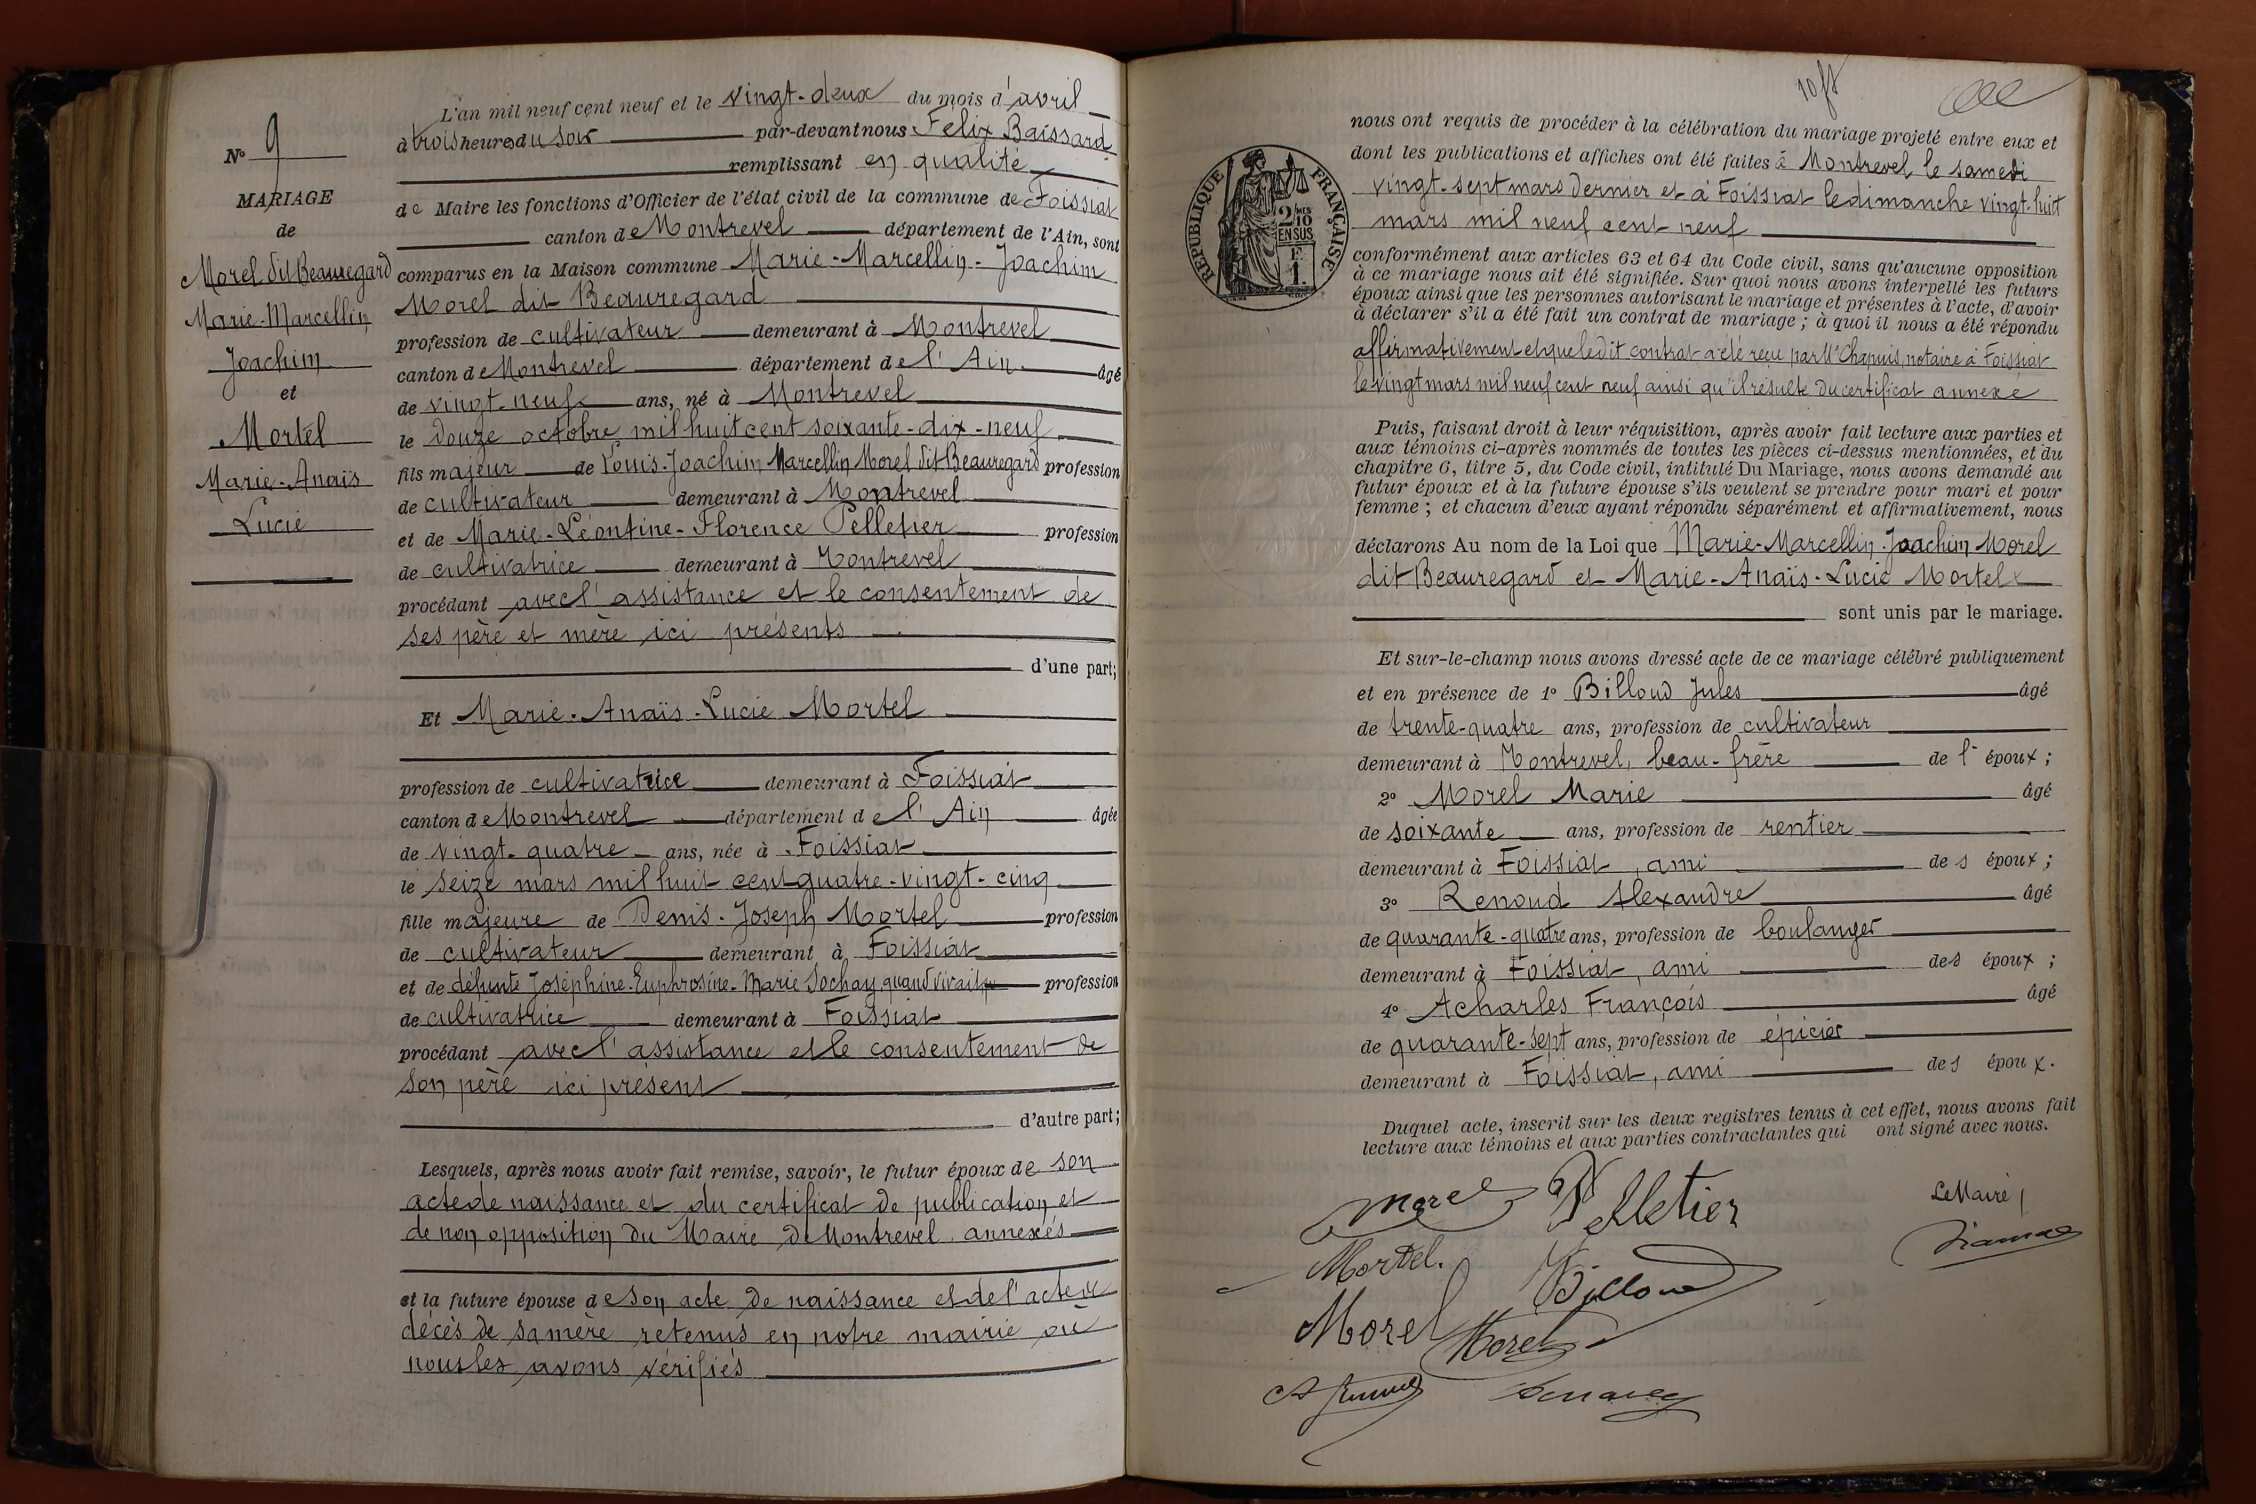 L'an mil neuf cent neuf et le vingt-deux du mois d'avril
à trois heures du soir par-devant nous Félix Baissard
remplissant en qualité
de Maire les fonctions d'Officier de l'état civil de la commune de Foissiat
canton de Montrevel département de l'Ain, sont
comparus en la Maison commune Marie-Marcellin-Joachim
Morel dit Beauregard
profession de cultivateur demeurant à Montrevel
canton de Montrevel département de l'Ain âgé
de vingt-neuf ans, né à Montrevel
le douze octobre mil huit cent soixante-dix-neuf
fils majeur de Louis-Joachim Marcellin Morel dit Beauregard profession
de cultivateur demeurant à Montrevel
et de Marie-Léontine-Florence Pelletier profession
de cultivatrice demeurant à Montrevel
procédant avec l'assistance et le consentement de
ses père et mère ici présents
d'une part;
Et Marie-Anaïs-Lucie Mortel
profession de cultivatrice demeurant à Foissiat
canton de Montrevel département de l'Ain âgée
de vingt-quatre ans, née à Foissiat
le seize mars mil huit cent quatre-vingt-cinq
fille majeure de Denis-Joseph Mortel profession
de cultivateur demeurant à Foissiat
et de défunte Joséphine-Euphrosine-Marie Sochay quand vivait profession
de cultivatrice demeurant à Foissiat
procédant avec l'assistance et le consentement de
son père ici présent
d'autre part;
Lesquels, après nous avoir fait remise, savoir, le futur époux de son
acte de naissance et du certificat de publication et
de non opposition du Maire de Montrevel annexés
et la future épouse de son acte de naissance et de l'acte de
décès de sa mère retenus en notre mairie où
nous les avons vérifiés
N° 9
MARIAGE
de
Morel dit Beauregard
Marie-Marcellin
Joachim
et
Mortel
Marie-Anaïs
Lucie
nous ont requis de procéder à la célébration du mariage projeté entre eux et
dont les publications et affiches ont été faites à Montrevel le samedi
vingt-sept mars dernier et à Foissiat le dimanche vingt-huit
mars mil neuf cent neuf
RÉPUBLIQUE FRANÇAISE
2/10 MES
EN SUS
1 F.
conformément aux articles 63 et 64 du Code civil, sans qu'aucune opposition
à ce mariage nous ait été signifiée. Sur quoi nous avons interpellé les futurs
époux ainsi que les personnes autorisant le mariage et présentes à l'acte, d'avoir
à déclarer s'il a été fait un contrat de mariage ; à quoi il nous a été répondu
affirmativement et que ledit contrat a été reçu par Me Chapuis, notaire à Foissiat
le vingt mars mil neuf cent neuf ainsi qu'il résulte du certificat annexé
Puis, faisant droit à leur réquisition, après avoir fait lecture aux parties et
aux témoins ci-après nommés de toutes les pièces ci-dessus mentionnées, et du
chapitre 6, titre 5, du Code civil, intitulé Du Mariage, nous avons demandé au
futur époux et à la future épouse s'ils veulent se prendre pour mari et pour
femme ; et chacun d'eux ayant répondu séparément et affirmativement, nous
déclarons Au nom de la Loi que Marie-Marcellin-Joachim Morel
dit Beauregard et Marie-Anaïs-Lucie Mortel
sont unis par le mariage.
Et sur-le-champ nous avons dressé acte de ce mariage célébré publiquement
et en présence de 1° Billoud Jules âgé
de trente-quatre ans, profession de cultivateur
demeurant à Montrevel, beau-frère de l'époux ;
2° Morel Marie âgé
de soixante ans, profession de rentier
demeurant à Foissiat, ami des époux ;
3° Renoud Alexandre âgé
de quarante-quatre ans, profession de boulanger
demeurant à Foissiat, ami des époux ;
4° Acharles François âgé
de quarante-sept ans, profession de épicier
demeurant à Foissiat, ami des époux.
Duquel acte, inscrit sur les deux registres tenus à cet effet, nous avons fait
lecture aux témoins et aux parties contractantes qui ont signé avec nous.
Morel Pelletier
Le Maire
Mortel. Billoud
Morel Morel